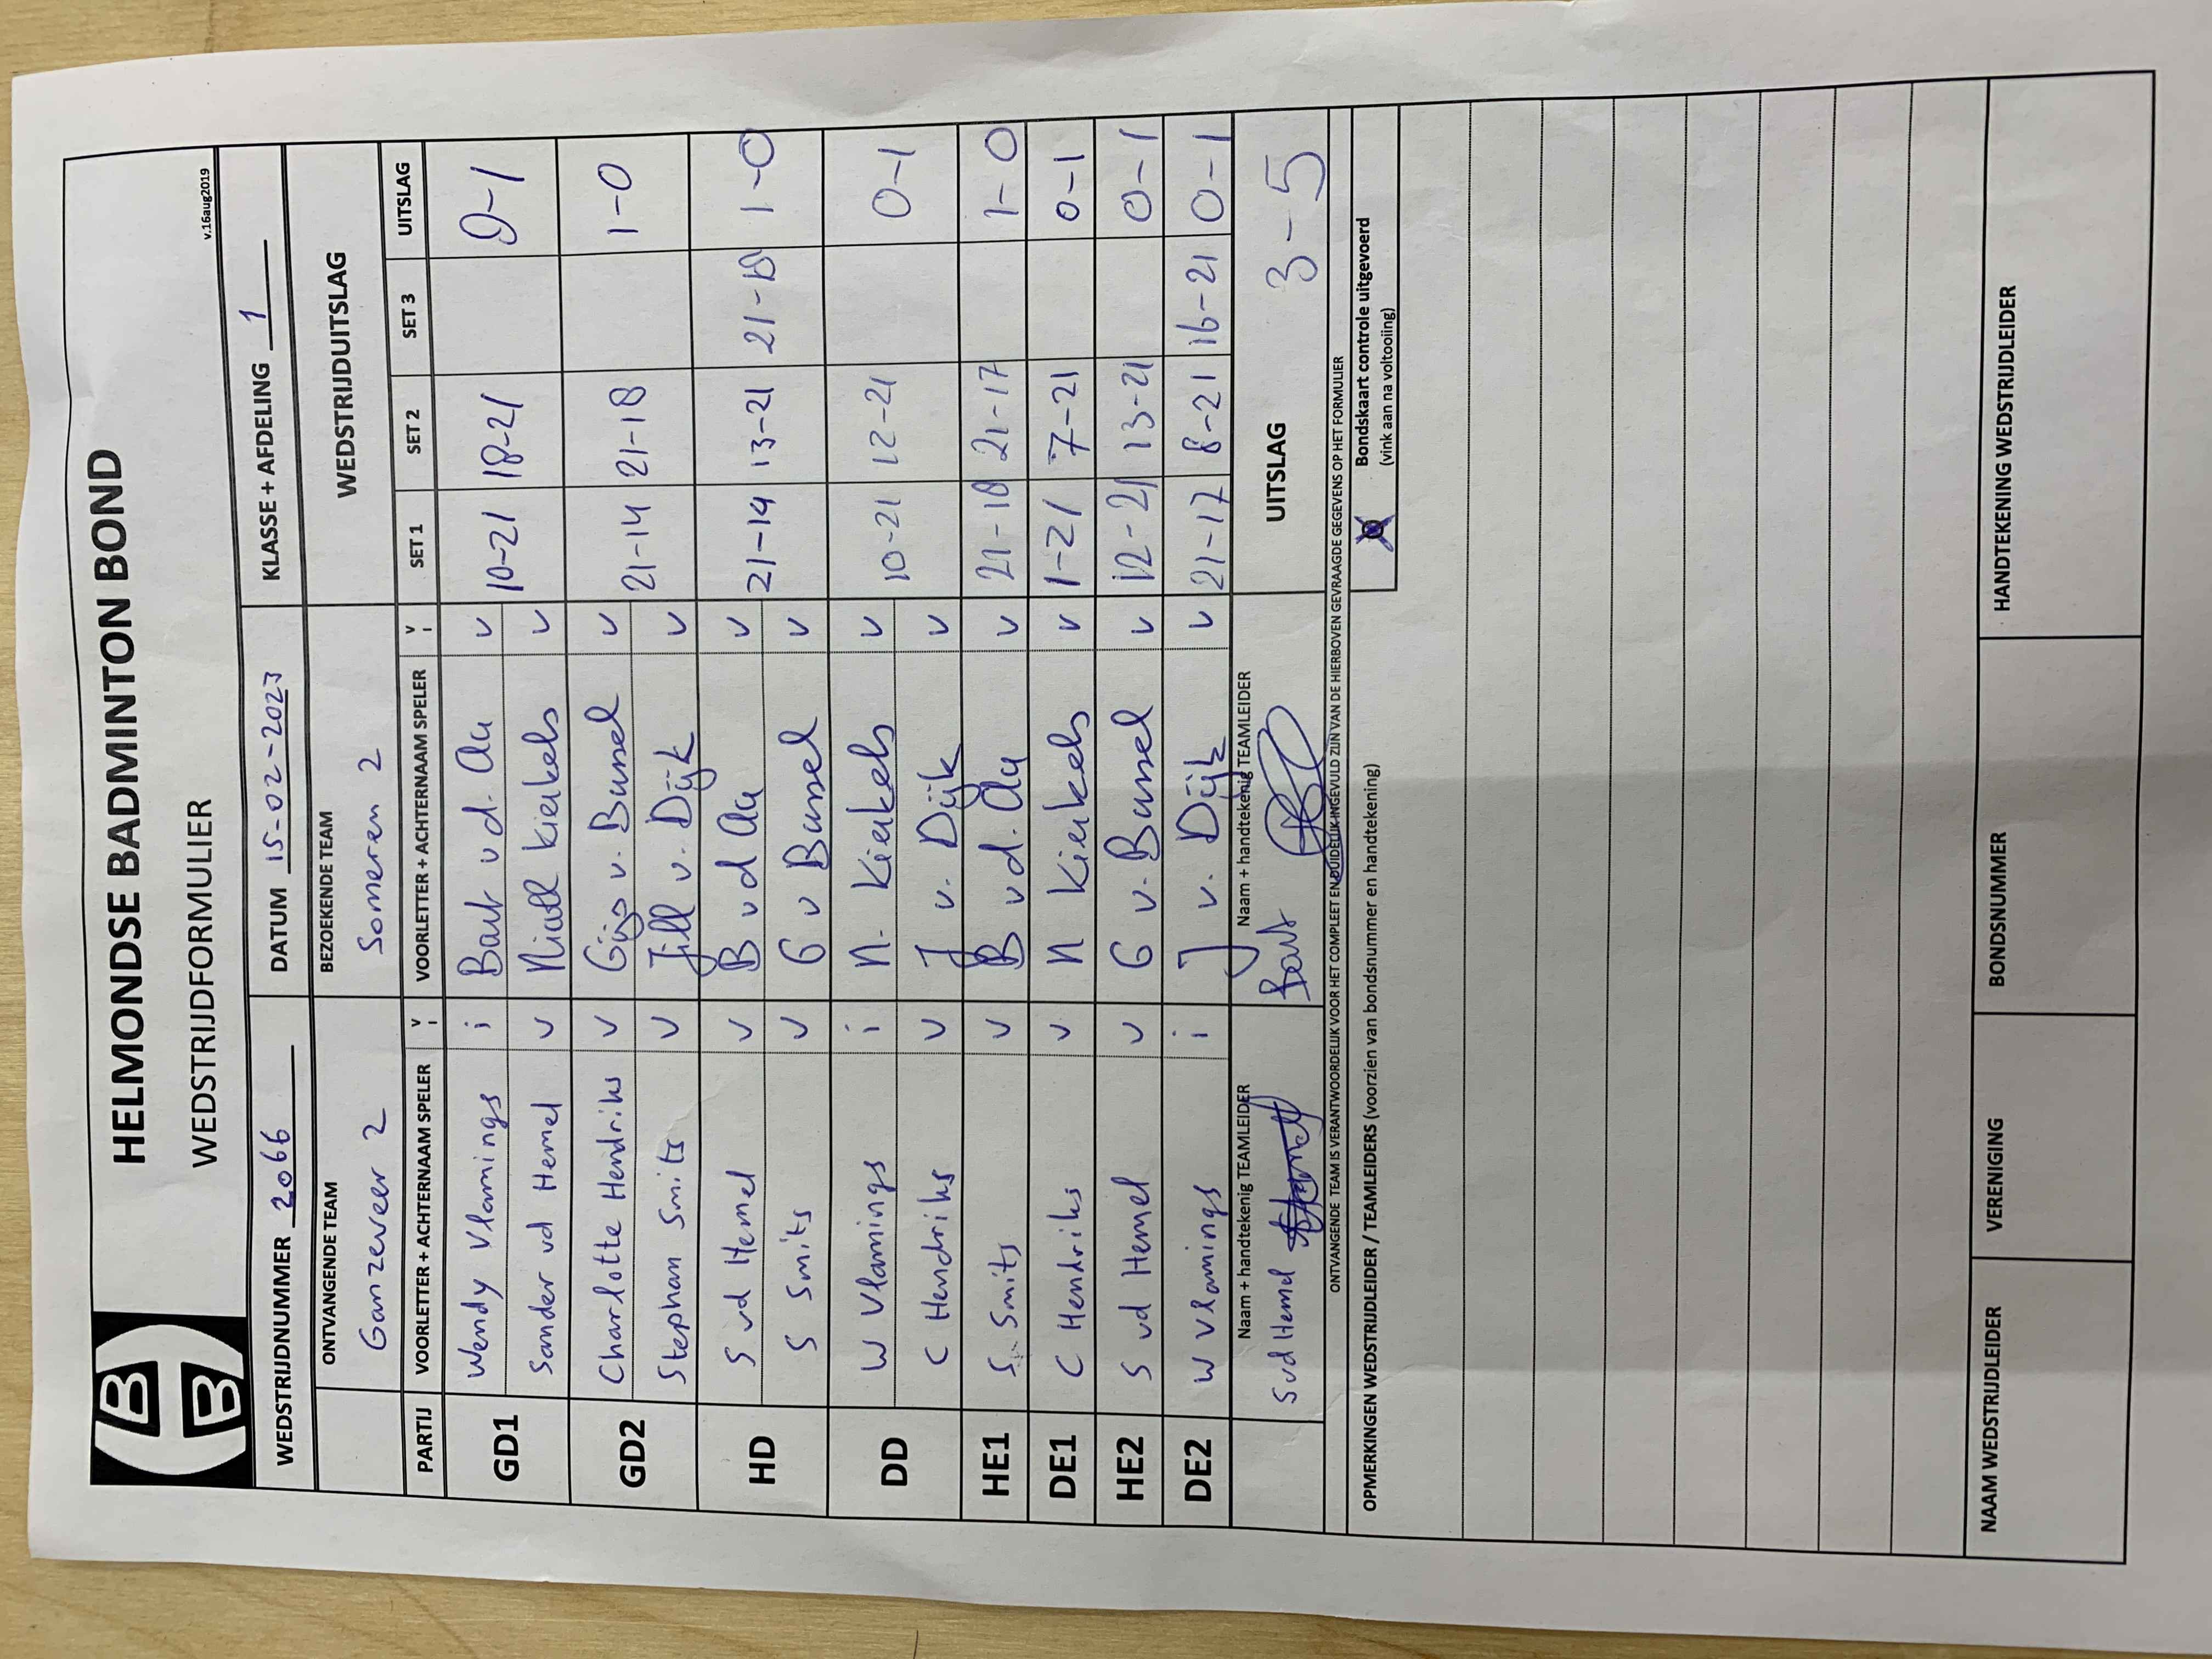 HELMONDSE BADMINTON BOND
WEDSTRIJDFORMULIER
v.16aug2019
WEDSTRIJDNUMMER 2066 DATUM 15-02-2023 KLASSE + AFDELING 1
ONTVANGENDE TEAM BEZOEKENDE TEAM WEDSTRIJDUITSLAG
Ganzeveer 2 Someren 2
PARTIJ VOORLETTER + ACHTERNAAM SPELER V I VOORLETTER + ACHTERNAAM SPELER V I SET 1 SET 2 SET 3 UITSLAG
GD1 Wendy Vlamings i Bart vd. Aa v 10-21 18-21 0-1
Sander vd Hemel v Nicoll Kierkels v
GD2 Charlotte Hendriks v Gijs v. Bussel v 21-14 21-18 1-0
Stephan Smits v Jill v. Dijk v
HD S vd Hemel v B vd Aa v 21-19 13-21 21-18 1-0
S Smits v G v Bussel v
DD W Vlamings i N. Kierkels v 10-21 12-21 0-1
C Hendriks v J v. Dijk v
HE1 S. Smits v B vd. Aa v 21-18 21-17 1-0
DE1 C Hendriks v N Kierkels v 1-21 7-21 0-1
HE2 S vd Hemel v G v. Bussel v 12-21 13-21 0-1
DE2 W Vlamings i J v. Dijk v 21-17 8-21 16-21 0-1
Naam + handtekenig TEAMLEIDER Naam + handtekenig TEAMLEIDER UITSLAG 3-5
S vd Hemel Bart
ONTVANGENDE TEAM IS VERANTWOORDELIJK VOOR HET COMPLEET EN DUIDELIJK INGEVULD ZIJN VAN DE HIERBOVEN GEVRAAGDE GEGEVENS OP HET FORMULIER
OPMERKINGEN WEDSTRIJDLEIDER / TEAMLEIDERS (voorzien van bondsnummer en handtekening)
Bondskaart controle uitgevoerd
(vink aan na voltooiing)
NAAM WEDSTRIJDLEIDER VERENIGING BONDSNUMMER HANDTEKENING WEDSTRIJDLEIDER